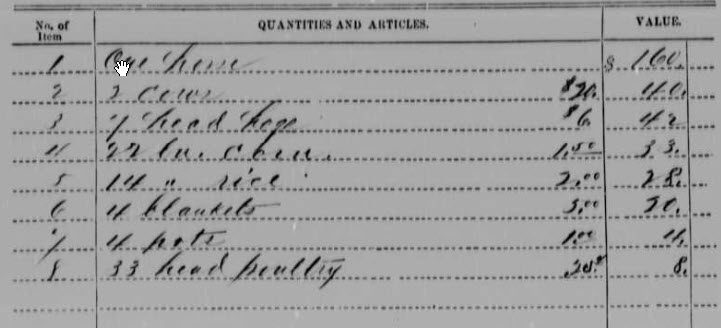 No. of Item QUANTITIES AND ARTICLES. VALUE.
1 One horse $ 160.
2 2 cows $20. 40.
3 7 head hogs $6. 42
4 22 bu. corn. 1.50 33.
5 14 " rice 2.00 28.
6 4 blankets 5.00 20.
7 4 pots 1.00 4.
8 33 head poultry 8.